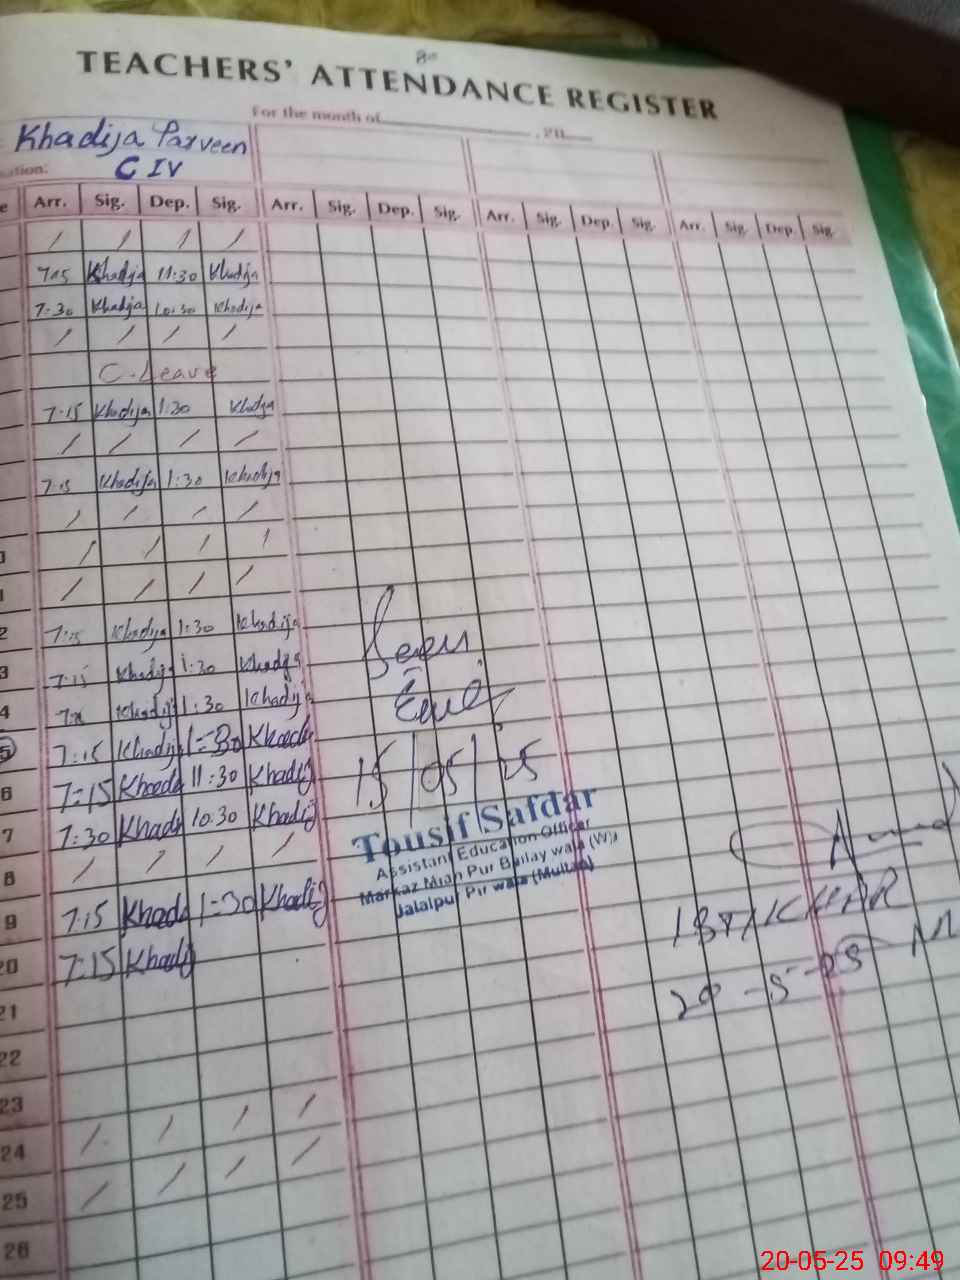 TEACHERS' ATTENDANCE REGISTER
For the month of , 20
Khadija Parveen
C IV
Arr. Sig. Dep. Sig. Arr. Sig. Dep. Sig. Arr. Sig. Dep. Sig. Arr. Sig. Dep. Sig.
/ / / /
7:15 Khadija 11:30 Khadija
7:30 Khadija 10:30 Khadija
/ / / /
C-Leave
7:15 Khadija 1:30 Khadija
/ / / /
7:15 Khadija 1:30 Khadija
/ / / /
/ / / /
/ / / /
7:15 Khadija 1:30 Khadija
7:15 Khadija 1:30 Khadija
4 Khadija 1:30 Khadija
5 7:15 Khadija 1=30 Khadi
6 7:15 11:30 Khadij
7 7:30 Khadi 10:30 Khadij
8 / / / /
9 7:15 1=30 Khadij
20 7:15 Khadij
21
22
23
24 / / / /
25 / / / /
26
Seen
15/05/25
Tousif Safdar
Assistant Education Officer
Markaz Mian Pur Bailay wala (W),
Jalalpur Pir wala (Multan)
20-05-25 09:49